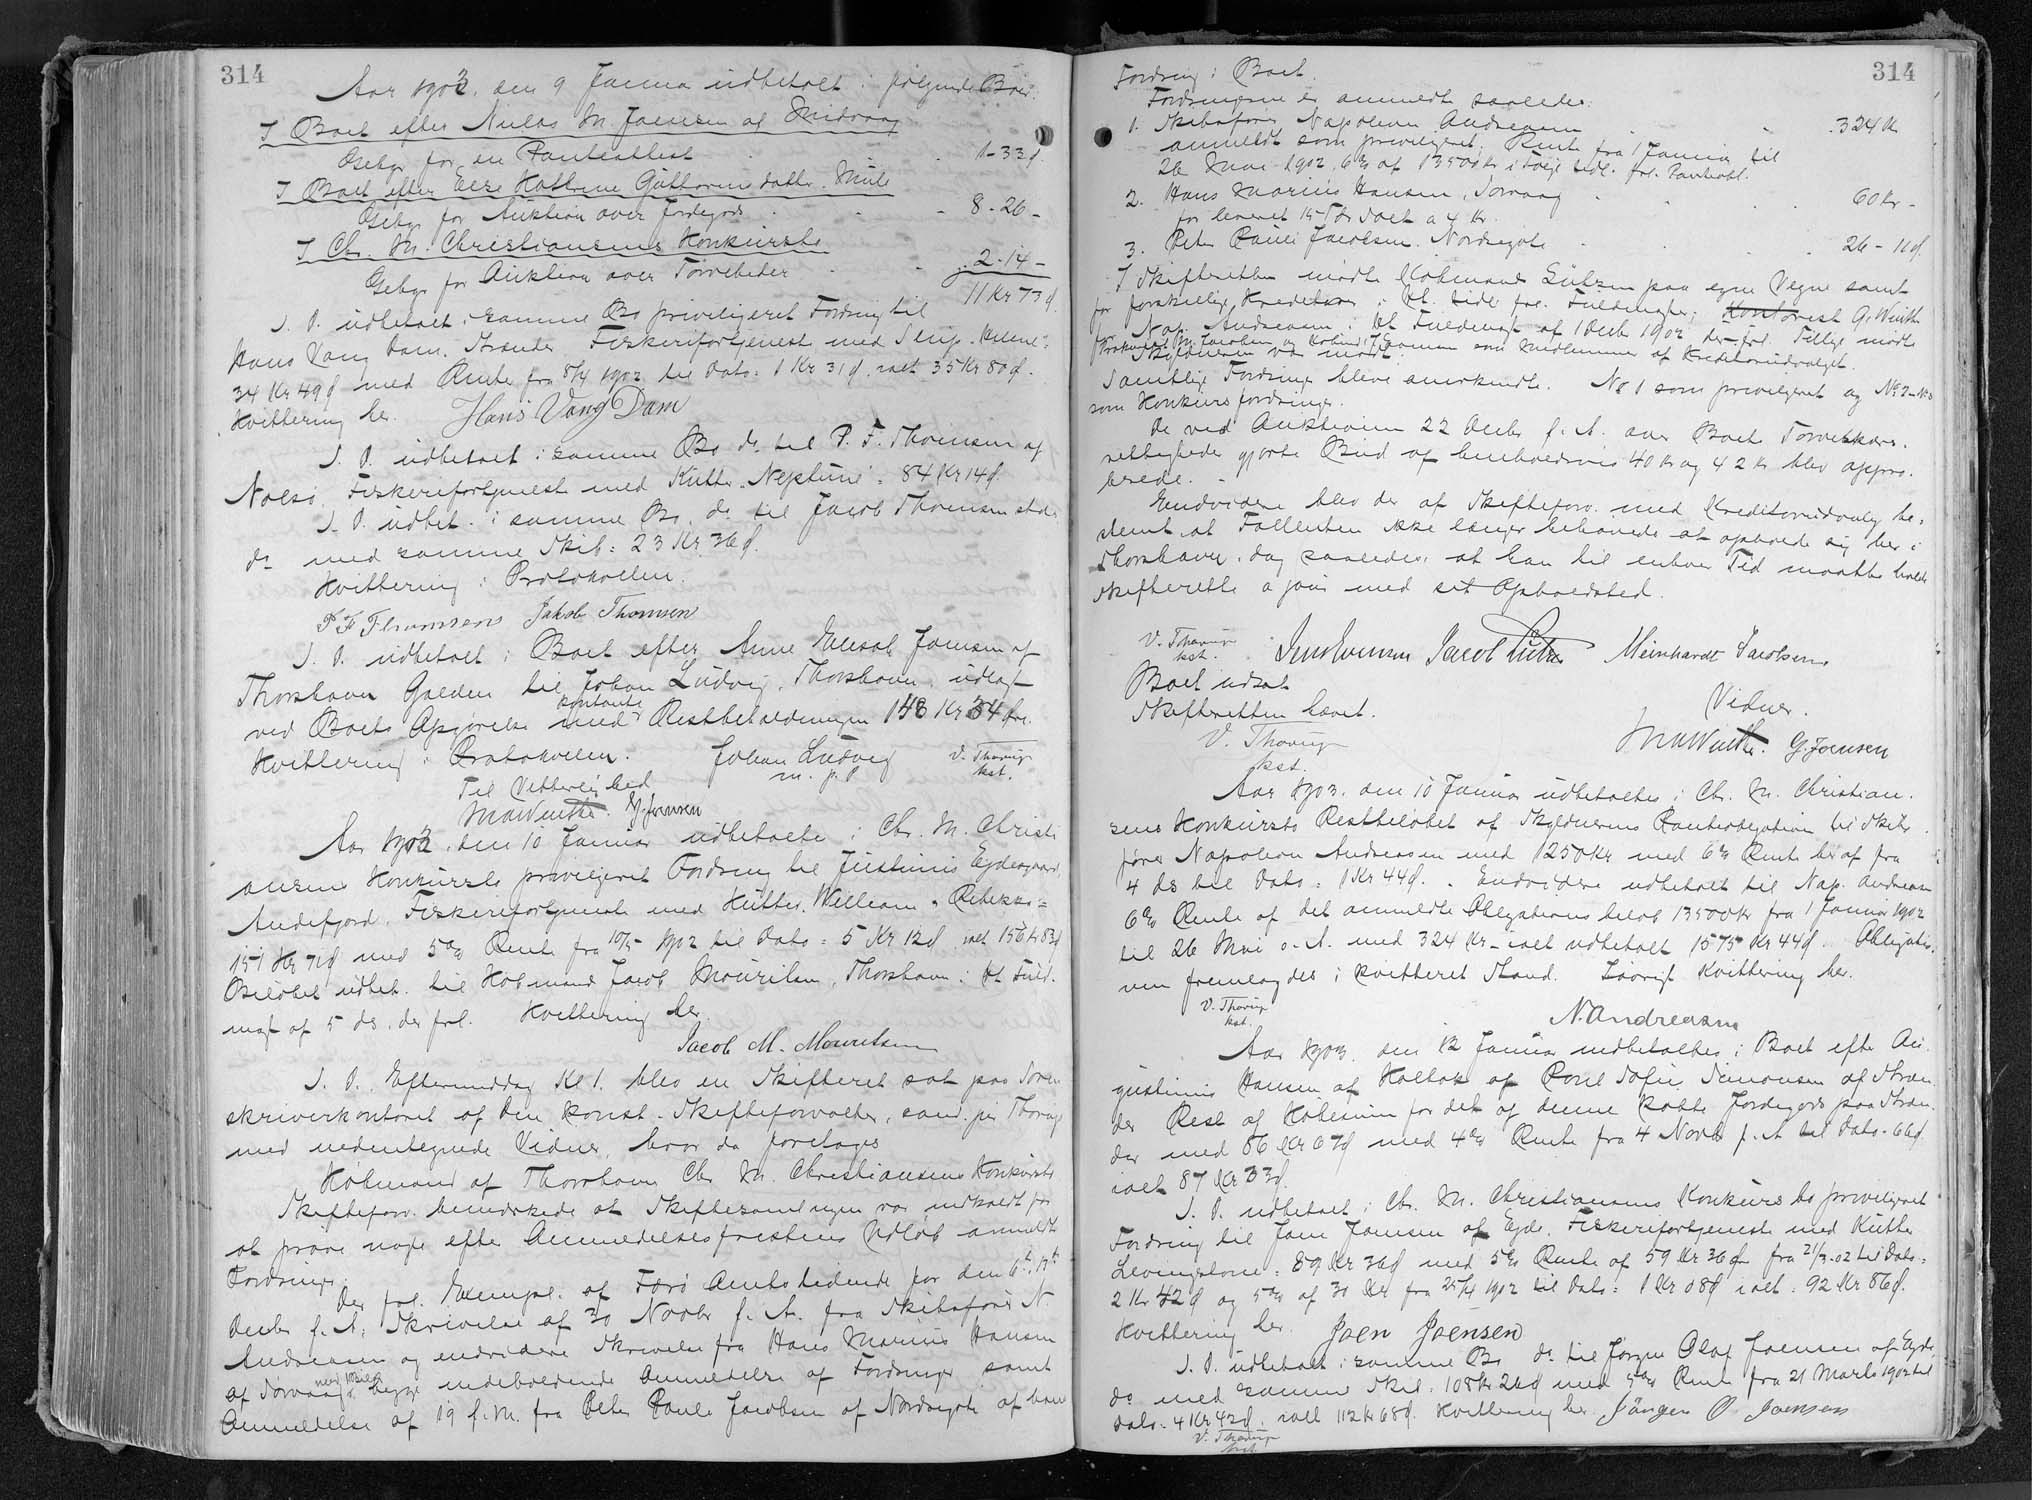 314
Aar 1903, den 9 Januar udbetalt i følgende Boer:
I Boet efter Niclas M Joensen af Midvaag
Gebyr for en Panteattest 1-33 d
I Boet efter Else Kathrine Guttormsdatter, Mule
Gebyr for Auktion over Jordegods 8-26-
I Chr. M. Christiansens Konkursbo
Gebyr for Auktion over Tørvebeder 2-14-
11 Kr 73 d.
S. D. udbetalt i samme Bo privilegeret Fordring til
Hans Vang Dam, Strænder Fiskerifortjeneste med Slup
34 Kr 49 d med Rente fra 8/4 1902 til Dato = 1 Kr 31 d, ialt 35 Kr 80 d.
Kvittering her. Hans Vang Dam
S. D. udbetalt i samme Bo do til P. F. Thomsen af
Nolsø, Fiskerifortjeneste med Kutter "Neptune" = 84 Kr 14 d.
S. D. udbet. i samme Bo do til Jacob Thomsen
do med samme Skib = 23 Kr 36 d.
Kvittering i Protokollen.
P F Thomsen Jakob Thomsen
S. D. udbetalt i Boet efter Anne Elisab. Joensen af
Thorshavn Gælden til Johan Ludvig, Thorshavn, udlagt
kontante
ved Boets Opgørelse med Restbetalningen 148 Kr 34 Øre.
Kvittering i Protokollen. Johan Ludvig V. Thorup
m. p. P kst.
Til Vitterlighed
MAWinther. G. Joensen
Aar 1903, den 10 Januar udbetaltes i Chr. M. Christi
ansens Konkursbo privilegeret Fordring til Justinus Eydesgaard,
Andefjord, Fiskerifortjeneste med Kutter William & Rebekka =
151 Kr 71 d med 5% Rente fra 10/5 1902 til Dato = 5 Kr 12 d ialt 156 Kr 83 d
Beløbet udbet. til Købmand Jacob Mouritsen, Thorshavn i Ht Fuld-
magt af 5 ds, der frl. Kvittering her.
Jacob M. Mouritsen
S. D. Eftermiddag Kl 1. blev en Skifteret sat paa Soren-
skriverkontoret af den konst. Skifteforvalter, cand. jur Thorup
med undertegnede Vidner, hvor da foretoges
Købmand af Thorshavn Chr M. Christiansens Konkursbo
Skifteforv. bemærkede at Skiftesamlingen var indkaldt for
at prøve nogle efter Anmeldelsesfristens Udløb anmeldte
Fordringer.
Der frl. Exempl. af Færø Amtstidende for den 6te, 13te
Decbr f. A; Skrivelse af 30 Novbr f. A. fra Skibsfører N
Andreasen og endvidere Skrivelse fra Hans Marius Hansen
af Sørvaag begge indeholdende Anmeldelse af Fordringer samt
Anmeldelse af 19 f. M. fra Peter Poulei Jacobsen af Nordregøte af hans
314
Fordring i Boet.
Fordringerne er anmeldt saaledes:
1. Skibsfører Napoleon Andreasen 324 Kr
anmeldt som privilegeret; Rente fra 1 Januar til
26 Mai 1902, 6% af 13500 Kr ifølge tidl. frl. Panteobl.
2. Hans Marius Hansen, Sørvaag 60 Kr -
for leveret 15 Tdr Salt a 4 Kr.
3. Peter Poulei Jacobsen, Nordregøte 26 - 11 d.
I Skifteretten mødte Købmand Lützen paa egne Vegne samt
for forskellige Kreditorer i Hl. tidl. frl. Fuldmagter; Kontorist G. Winther
for Nap. Andreasen i Hl Fuldmagt af 1 Decbr 1902 der frl. Tillige mødte
Prokurist M. Jacobsen og Købmd Joensen som Medlemmer af Kreditorudvalget.
Skyldneren var mødt.
Samtlige Fordringer bleve anerkendte. No 1 som privilegeret og No 2 - No 3
som Konkursfordringer.
De ved Auktionen 22 Decbr f. A. over Boets Tørveskærs-
rettigheder gjorte Bud af henholdsvis 40 Kr og 42 Kr blev appro-
berede.
Endvidere blev der af Skifteforv. med Kreditorudvalg be-
stemt at Fallenten ikke længer behøvede at opholde sig her i
Thorshavn, dog saaledes, at han til enhver Tid maatte holde
Skifteretten a jour med sit Opholdsted.
V. Thorup
kst. Jens Joensen Jacob Lützen Meinhardt Jacobsen
Boet udsat
Skifteretten hævet. Vidner.
V. Thorup MAWinther. G. Joensen
kst.
Aar 1903, den 10 Januar udbetaltes i Chr. M. Christian-
sens Konkursbo Restbeløbet af Skyldnerens Panteobligation til Skibs-
fører Napoleon Andreasen med 1250 Kr med 6% Rente heraf fra
4 ds til Dato = 1 Kr 44 d. Endvidere udbetalt til Nap. Andreasen
6% Rente af det anmeldte Obligationsbeløb 13500 Kr fra 1 Januar 1902
til 26 Mai s. A. med 324 Kr - ialt udbetalt 1575 Kr 44 d. Obligatio-
nen fremlagdes i kvitteret Stand. Iøvrigt Kvittering her.
V. Thorup
kst. N. Andreasen
Aar 1903, den 12 Januar indbetaltes i Boet efter Au-
gustinus Hansen af Kaltbak af Poul Sofus Simonsen af Stræn-
der Rest af Købesum for det af denne købte Jordegods paa Stræn-
der med 86 Kr 67 d med 4% Rente fra 4 Novbr f. A til Dato - 66 d
ialt 87 Kr 33 d.
S. D. udbetalt i Chr. M. Christiansens Konkursbo privilegeret
Fordring til Joen Joensen af Ejde, Fiskerifortjeneste med Kutter
Levingstone = 89 Kr 36 d med 5% Rente af 59 Kr 36 d fra 21/3-02 til Dato =
2 Kr 42 d og 5% af 30 Kr fra 25/4 1902 til Dato = 1 Kr 08 d ialt = 92 Kr 86 d.
Kvittering her. Joen Joensen
S. D. udbetalt i samme Bo do til Jørgen Olaf Joensen af Ejde,
do med samme Skib = 108 Kr 26 d med 5% Rente fra 21 Marts 1902 til
Dato = 4 Kr 42 d, ialt 112 Kr 68 d. Kvittering her Jörgen O Joensen
V. Thorup
kst.